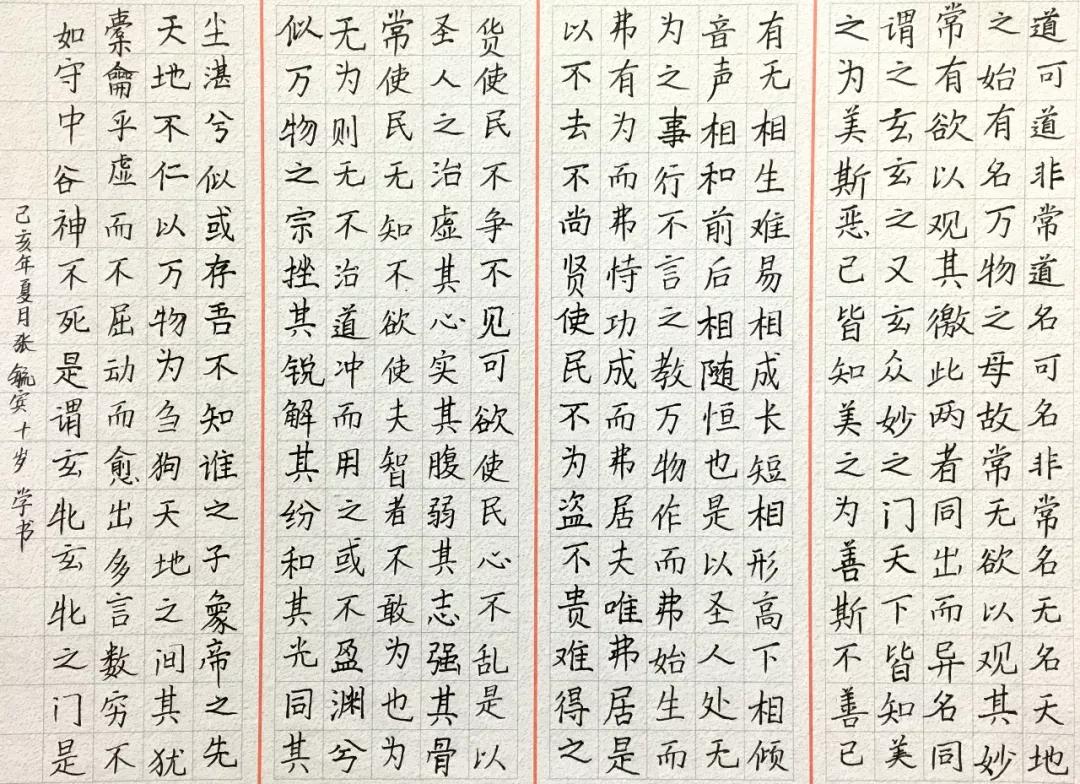 道可道非常道名可名非常名无名天地
之始有名万物之母故常无欲以观其妙
常有欲以观其徼此两者同出而异名同
谓之玄玄之又玄众妙之门天下皆知美
之为美斯恶已皆知美之为善斯不善已
有无相生难易相成长短相形高下相倾
音声相和前后相随恒也是以圣人处无
为之事行不言之教万物作而弗始生而
弗有为而弗恃功成而弗居夫唯弗居是
以不去不尚贤使民不为盗不贵难得之
货使民不争不见可欲使民心不乱是以
圣人之治虚其心实其腹弱其志强其骨
常使民无知不欲使夫智者不敢为也为
无为则无不治道冲而用之或不盈渊兮
似万物之宗挫其锐解其纷和其光同其
尘湛兮似或存吾不知谁之子象帝之先
天地不仁以万物为刍狗天地之间其犹
橐龠乎虚而不屈动而愈出多言数穷不
如守中谷神不死是谓玄牝玄牝之门是
己亥年夏月张毓宾十岁学书